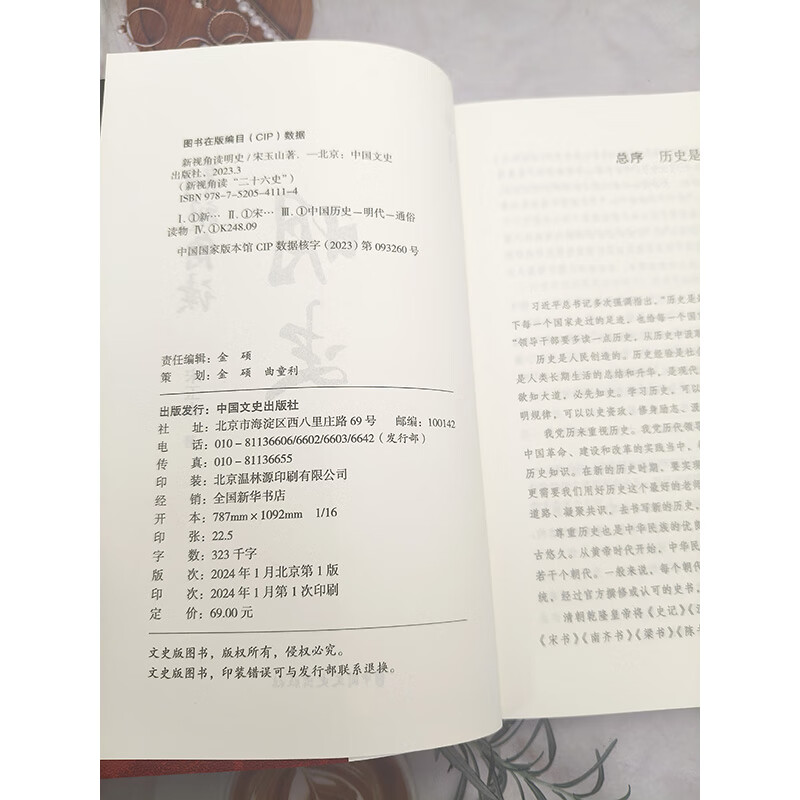 图书在版编目（CIP）数据
新视角读明史 / 宋玉山著. —北京：中国文史
出版社，2023.3
（新视角读“二十六史”）
ISBN 978-7-5205-4111-4
Ⅰ.①新… Ⅱ.①宋… Ⅲ.①中国历史－明代－通俗
读物 Ⅳ.①K248.09
中国国家版本馆 CIP 数据核字（2023）第 093260 号
责任编辑：金 硕
策 划：金 硕 曲童利
出版发行：中国文史出版社
社 址：北京市海淀区西八里庄路 69 号 邮编：100142
电 话：010－81136606/6602/6603/6642（发行部）
传 真：010－81136655
印 装：北京温林源印刷有限公司
经 销：全国新华书店
开 本：787mm×1092mm 1/16
印 张：22.5
字 数：323 千字
版 次：2024 年 1 月北京第 1 版
印 次：2024 年 1 月第 1 次印刷
定 价：69.00 元
文史版图书，版权所有，侵权必究。
文史版图书，印装错误可与发行部联系退换。
总序 历史是
习近平总书记多次强调指出，“历史是
下每一个国家走过的足迹，也给每一个国
“领导干部要多读一点历史，从历史中汲取
历史是人民创造的。历史经验是社
是人类长期生活的总结和升华，是现代
欲知大道，必先知史。学习历史，可以
明规律，可以以史资政、修身励志、
我党历来重视历史。我党历代领导
中国革命、建设和改革的实践当中，
历史知识。在新的历史时期，要实现
更需要我们用好历史这个最好的老师
道路、凝聚共识，去书写新的历史，
尊重历史也是中华民族的优良
古悠久。从黄帝时代开始，中华民
若干个朝代。一般来说，每个朝代
统，经过官方撰修或认可的史书，
清朝乾隆皇帝将《史记》
《宋书》《南齐书》《梁书》《陈书